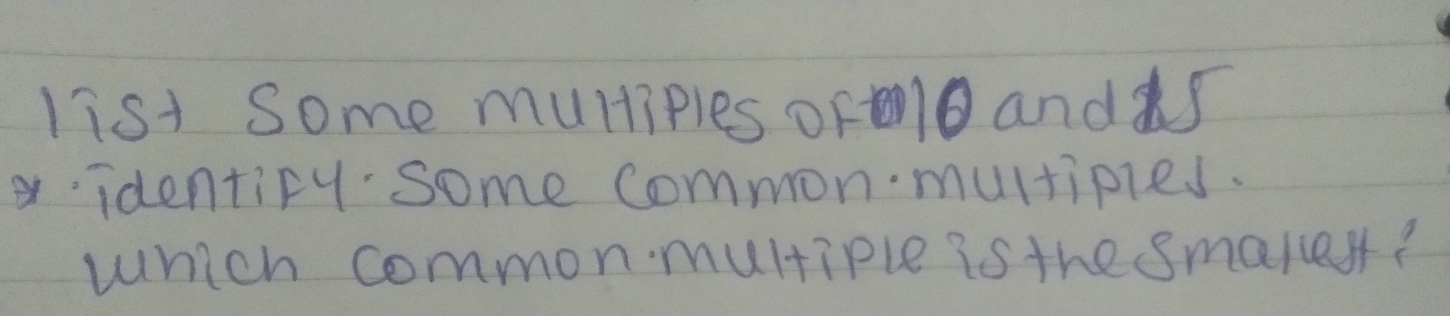 list some multiples of 10 and 15
identify. some common. multiples.
which common. multiple is the smallest?